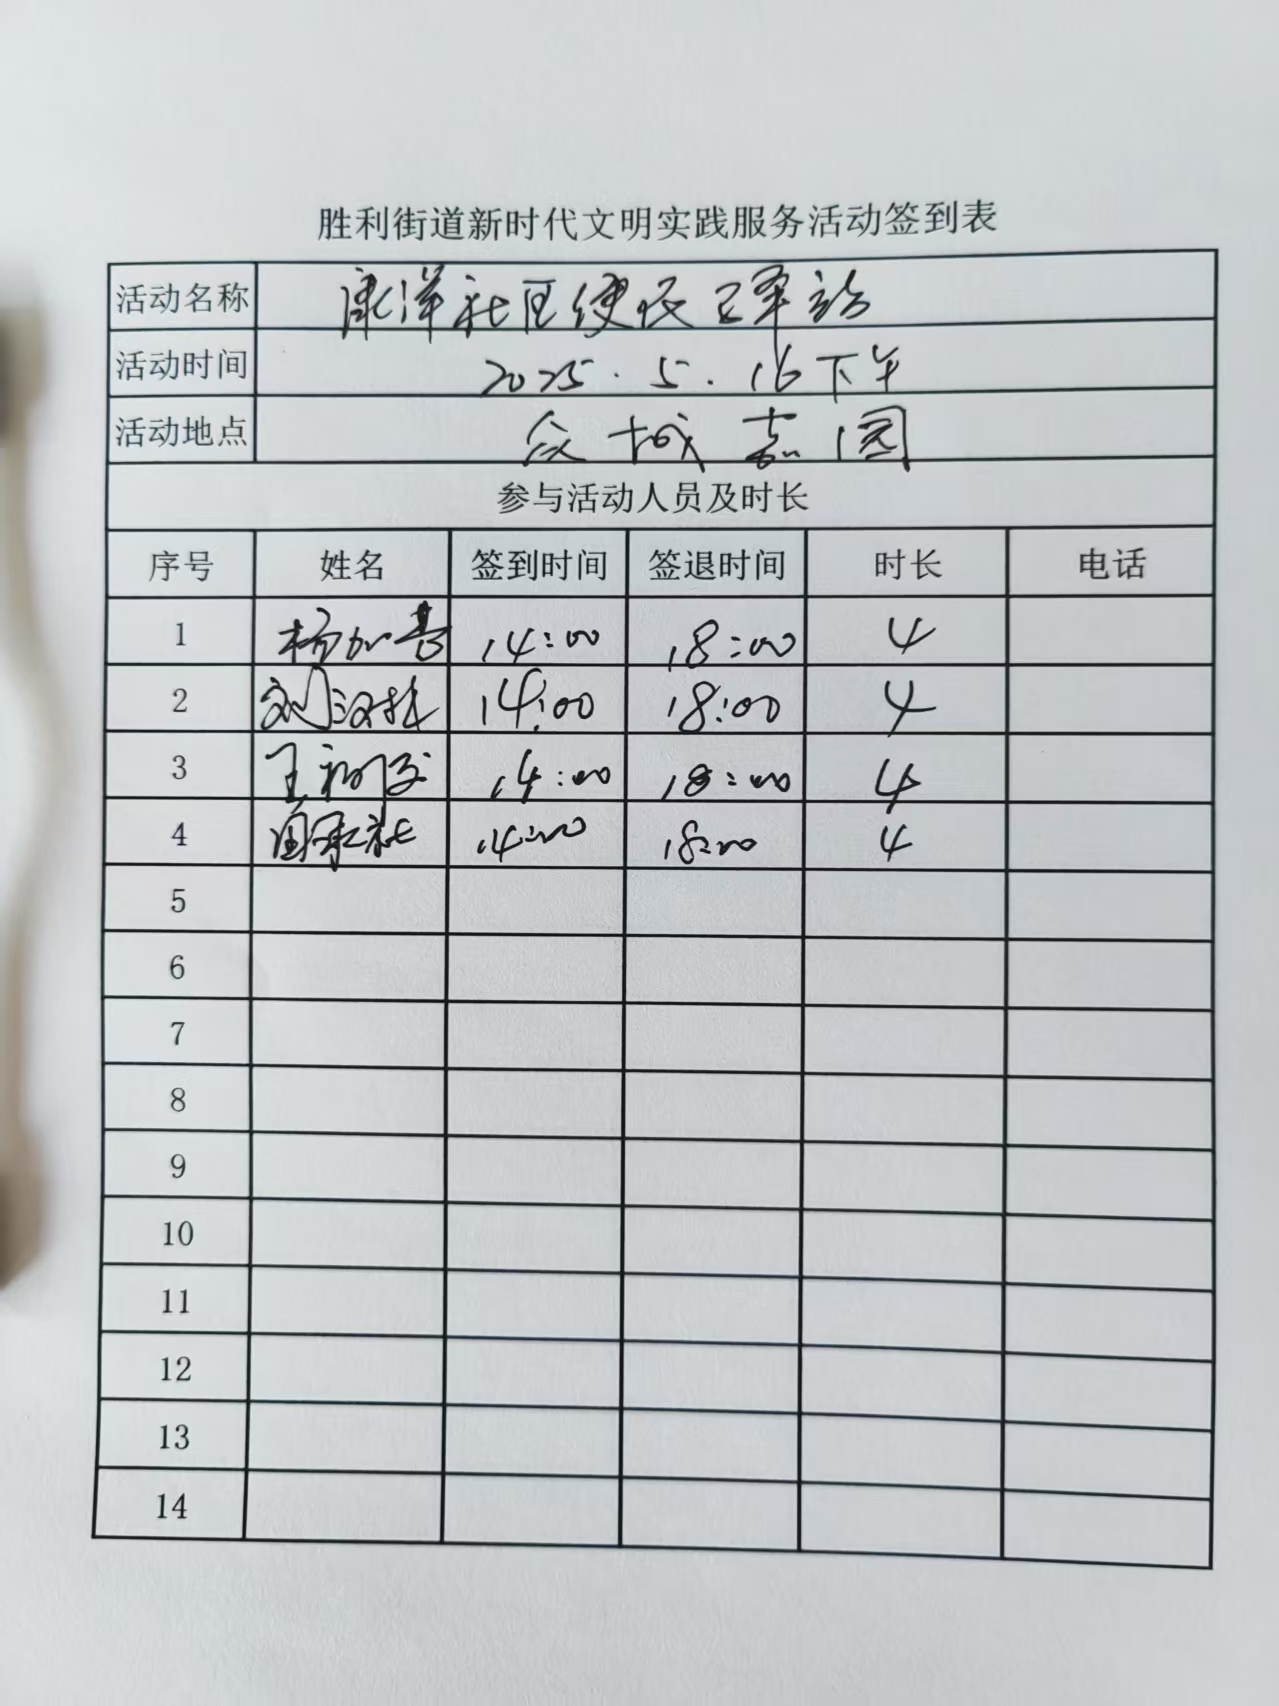 胜利街道新时代文明实践服务活动签到表
活动名称 康洋社区便民卫军站
活动时间 2025.5.16下午
活动地点 众城嘉园
参与活动人员及时长
序号 姓名 签到时间 签退时间 时长 电话
1 杨加喜 14:00 18:00 4
2 刘汉 14:00 18:00 4
3 王 14:00 18:00 4
4 14:00 18:00 4
5
6
7
8
9
10
11
12
13
14